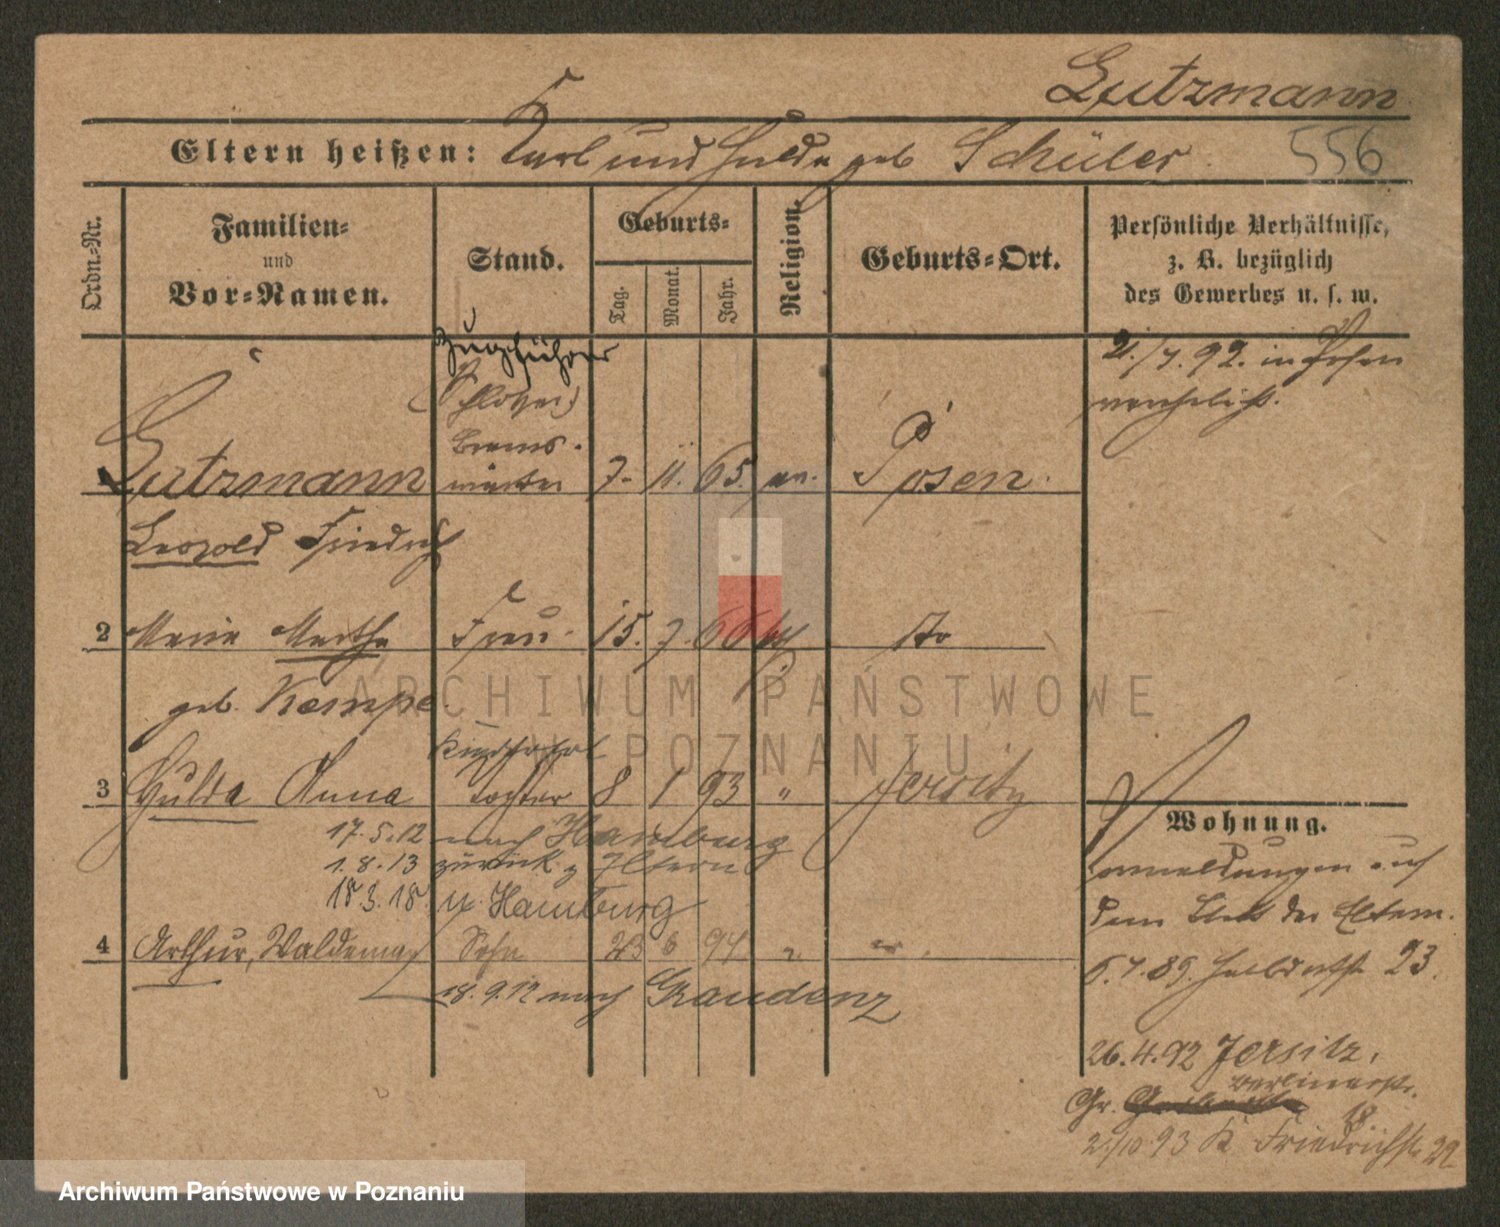 Gutzmann
Eltern heißen: Karl und Hulda geb Schüler.
556
Ordn.-Nr.
Familien- und Vor-Namen.
Stand.
Geburts-
Tag.
Monat.
Jahr.
Religion.
Geburts-Ort.
Persönliche Verhältnisse,
z. B. bezüglich
des Gewerbes u. s. w.
Zugführer
(Schlosser)
Brems-
wärter
1 Gutzmann 7. 11. 65. ev. Posen.
Leopold Friedrich
21./4. 92. in Posen
verehelicht.
2 Marie Martha Frau. 15. 7. 66 do
geb. Kempe.
3 Hulda Anna Tochter 8 1 93 " Jersitz
17.5.12 nach Hamburg
1.8.13 zurück z Eltern
18 3. 18. n. Hamburg
4 Arthur, Waldemar Sohn 23 6 94
18. 9. 12 nach Graudenz
Wohnung.
Anmeldungen auf
dem Blatt der Eltern.
6.4.89. Halbdorfst. 23.
26.4.92 Jersitz,
Gr. Berlinerstr.
18
2./10 93 K Friedrichst. 22
ARCHIWUM PAŃSTWOWE
W POZNANIU
Archiwum Państwowe w Poznaniu